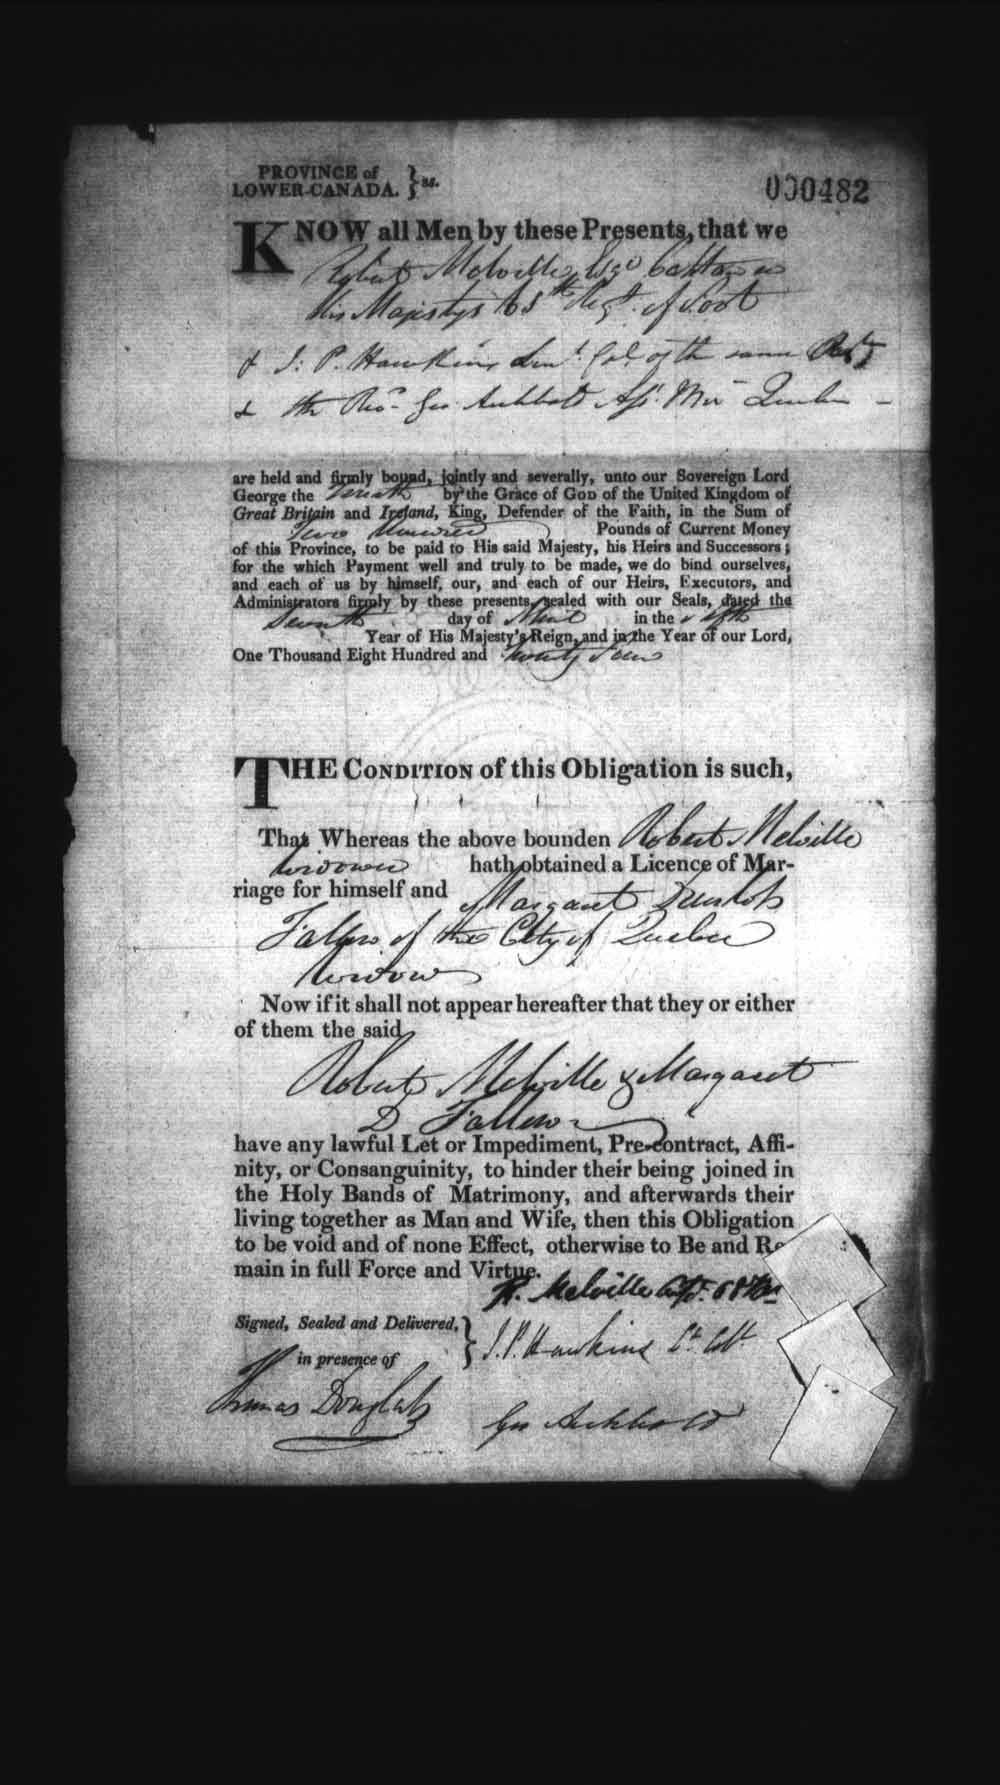 PROVINCE of
LOWER-CANADA. } ss.
000482
KNOW all Men by these Presents, that we
Robert Melville Esqr Captain in
His Majestys 68th Regt. of Foot
& J: P. Hawkins Lieut. Col of the same Regt
& the Revd. Geo Archbold Asst. Minr Quebec –
are held and firmly bound, jointly and severally, unto our Sovereign Lord
George the Fourth by the Grace of GOD of the United Kingdom of
Great Britain and Ireland, King, Defender of the Faith, in the Sum of
Two Hundred Pounds of Current Money
of this Province, to be paid to His said Majesty, his Heirs and Successors;
for the which Payment well and truly to be made, we do bind ourselves,
and each of us by himself, our, and each of our Heirs, Executors, and
Administrators firmly by these presents, sealed with our Seals, dated the
Seventh day of April in the fifth
Year of His Majesty's Reign, and in the Year of our Lord,
One Thousand Eight Hundred and Twenty Four
THE CONDITION of this Obligation is such,
That Whereas the above bounden Robert Melville
Widower hath obtained a Licence of Mar-
riage for himself and Margaret Dunlop
Fallow of the City of Quebec
Widow
Now if it shall not appear hereafter that they or either
of them the said
Robert Melville & Margaret
D Fallow
have any lawful Let or Impediment, Pre-contract, Affi-
nity, or Consanguinity, to hinder their being joined in
the Holy Bands of Matrimony, and afterwards their
living together as Man and Wife, then this Obligation
to be void and of none Effect, otherwise to Be and Re
main in full Force and Virtue.
R. Melville Captn. 68th
Signed, Sealed and Delivered, }
in presence of
J. P. Hawkins Lt. Colt.
Thomas Douglass
Geo Archbold